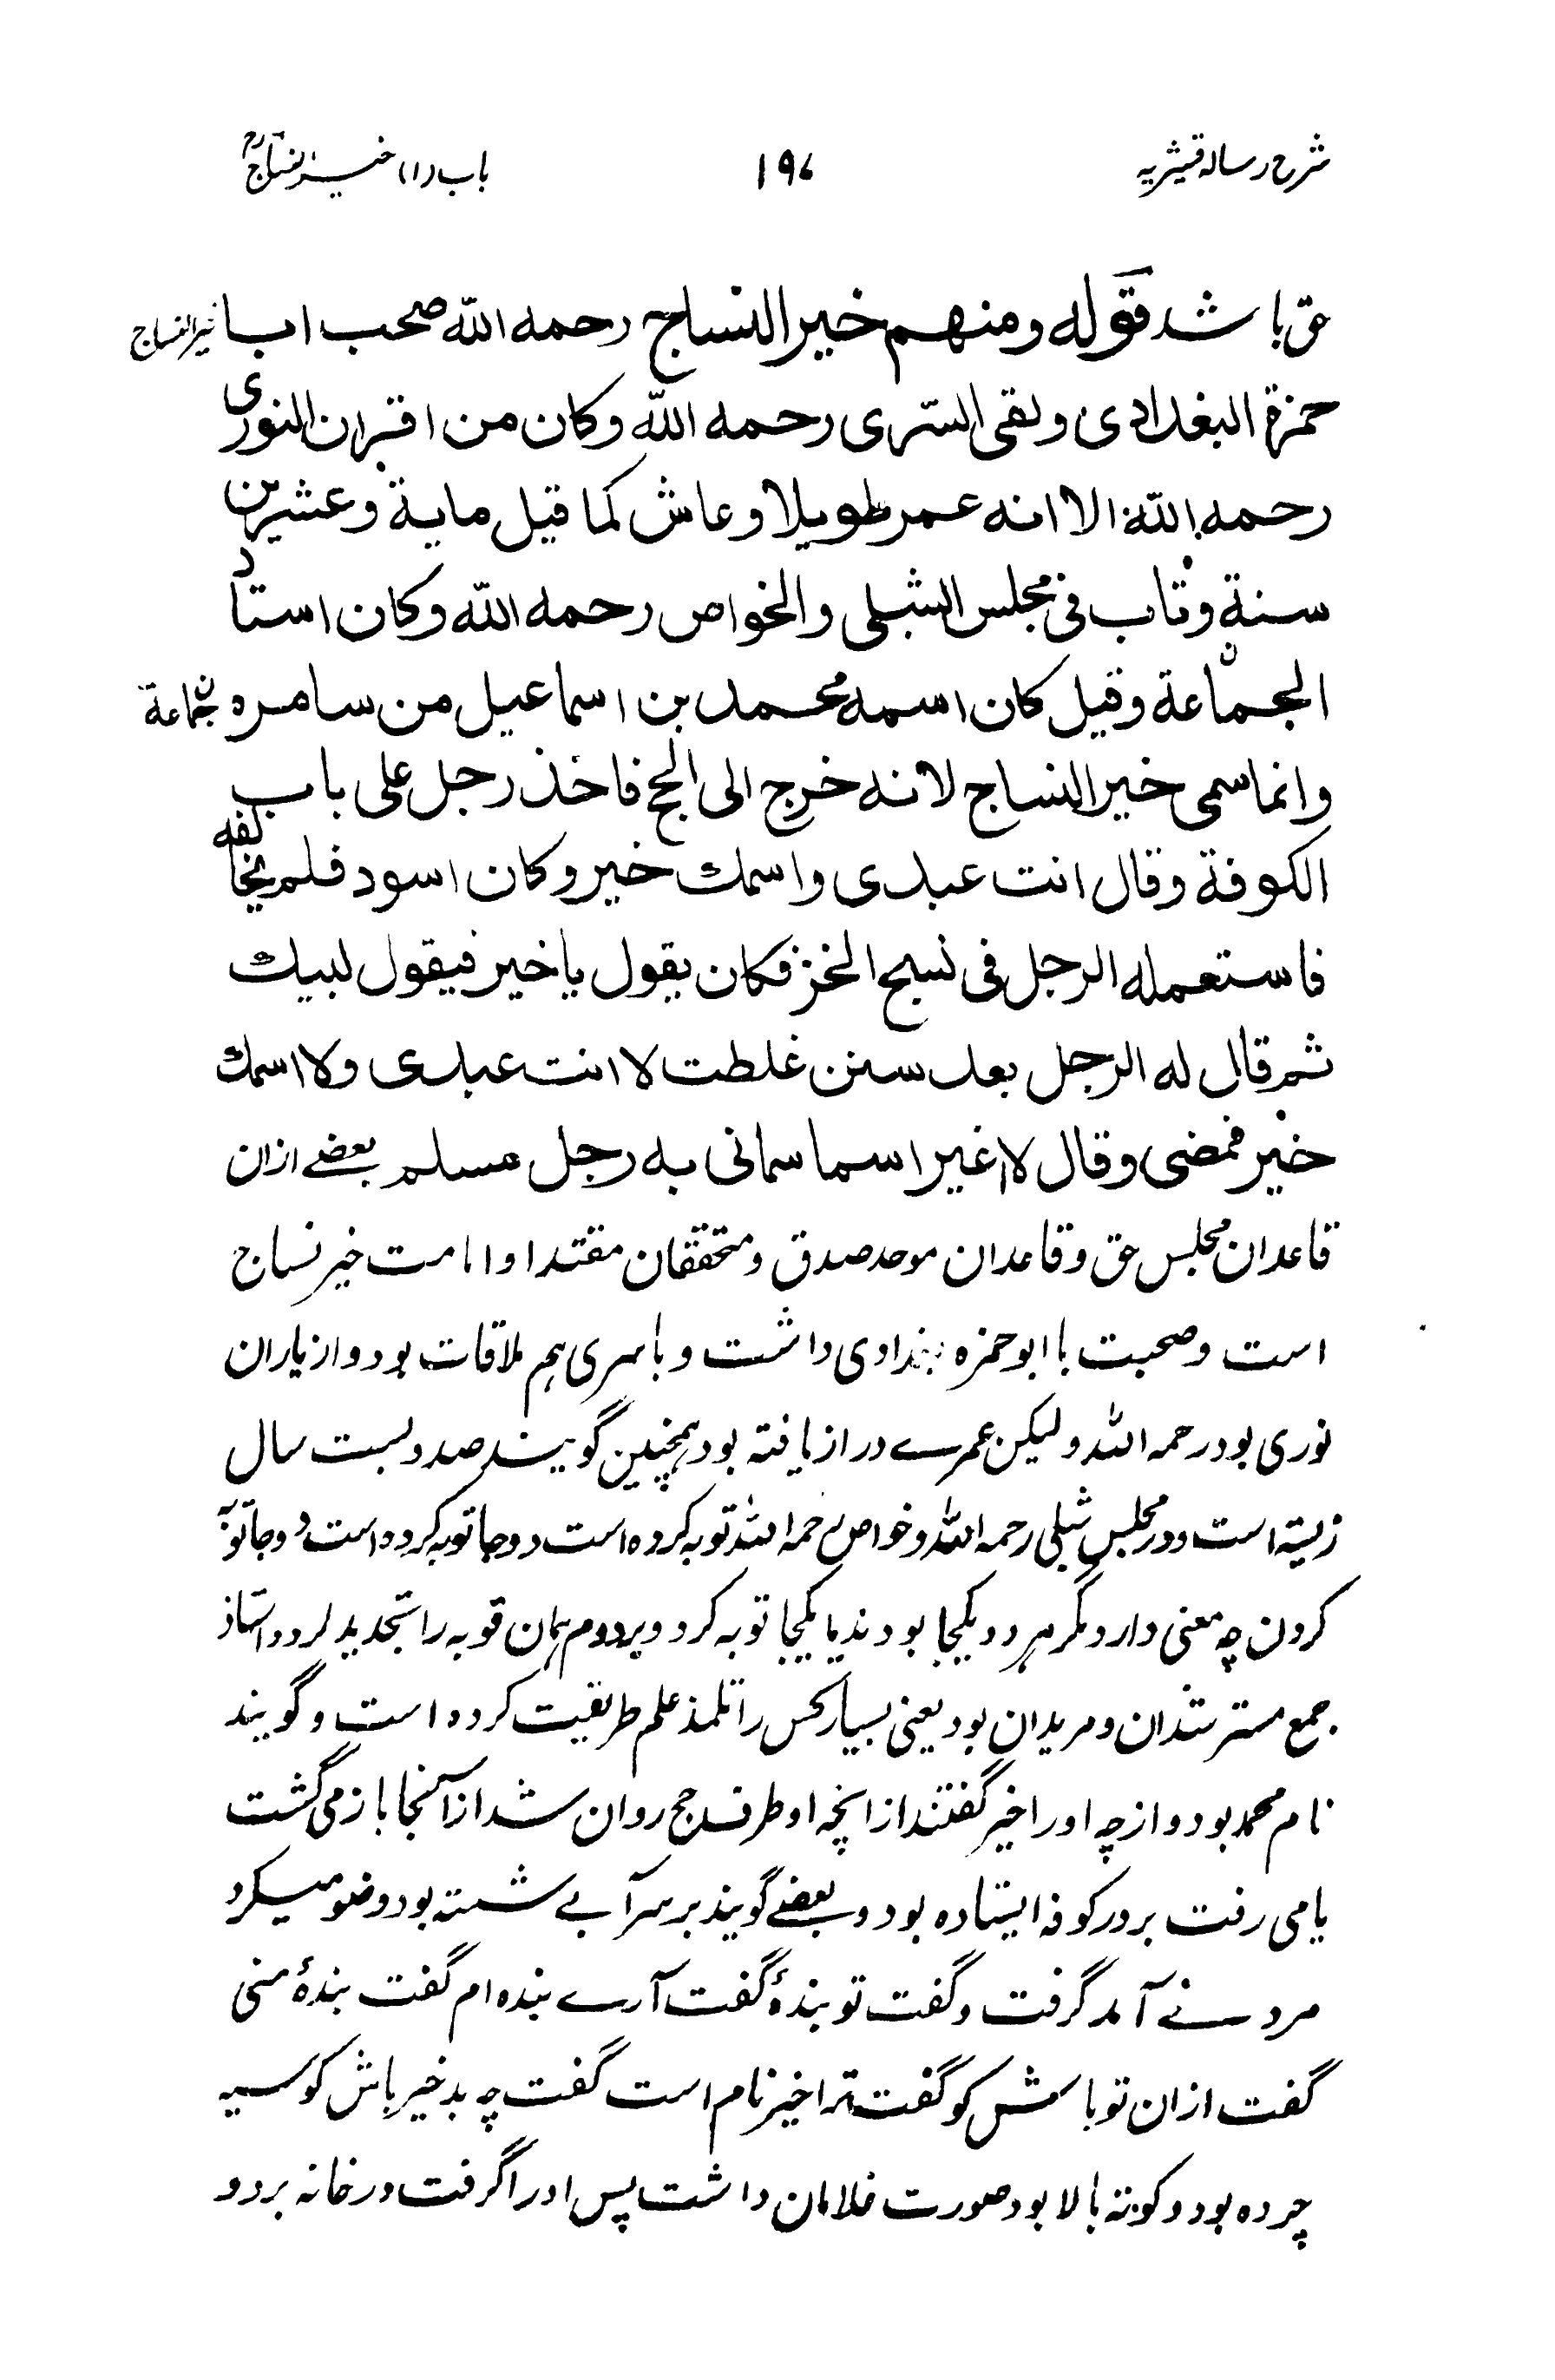 شرح رساله قشیریه
۱۹۷
باب (۱) خیر نساج رح
حق باشد قوله ومنهم خیر النساج رحمه الله صحب ابا
خیر النساج
حمزة البغدادی ولقی السری رحمه الله وکان من اقران النوری
رحمه الله الا انه عمر طویلا وعاش کما قیل مایة وعشرین
سنة وتاب فی مجلس الشبلی والخواص رحمه الله وکان استاد
الجماعة وقیل کان اسمه محمد بن اسماعیل من سامره
ن جماعة
وانما سمی خیر النساج لانه خرج الی الحج فاخذ رجل علی باب
الکوفة وقال انت عبدی واسمك خیر وکان اسود فلم یخالفه
فاستعمله الرجل فی نسج الخز فکان یقول یا خیر فیقول لبیك
ثم قال له الرجل بعد سنن غلطت لا انت عبدی ولا اسمك
خیر فمضی وقال لا اغیر اسما سمانی به رجل مسلم بعضے ازان
قاعدان مجلس حق وقاعدان موحد صدق ومتحققان مقتدا و امامت خیر نساج
است و صحبت با ابو حمزه بغدادی داشت و با سری ہم ملاقات بود و از یاران
نوری بود رحمه الله ولیکن عمرے دراز یافته بود ہمچنین گویند صد و بست سال
زیسته است و در مجلس شبلی رحمه الله و خواص رحمه الله توبه کرده است دو جا توبه کرده است و دو جا توبه
کردن چه معنی دارد مگر ہر دو یکجا بودند یا یکجا توبه کرد و بر دوم ہمان توبه را تجدید کرد و استاذ
جمع مسترشدان و مریدان بود یعنی بسیار کس را تلمذ علم طریقت کرده است و گویند
نام محمد بود و از چه او را خیر گفتند از انچه او طرف حج روان شد از آنجا باز می گشت
یا می رفت بر در کوفه ایستاده بود و بعضے گویند بر سر آبے شسته بود وضو میکرد
مردے آمد گرفت و گفت تو بندۂ گفت آرے بنده ام گفت بندۂ منی
گفت ازان تو باشم کو گفت ترا خیر نام است گفت چه بد خیر باش کو سیه
چرده بود و کوته بالا بود صورت غلامان داشت پس او را گرفت در خانه برد و